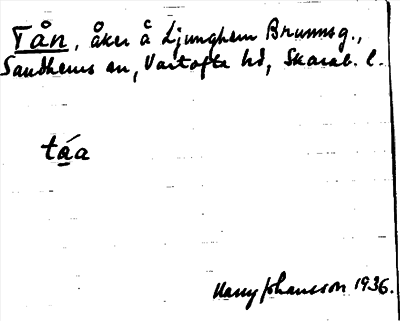 Tån, åker å Ljunghem Brunnsg.,
Sandhems sn, Vartofta hd, Skarab. l.
táa
Harry Johansson 1936.